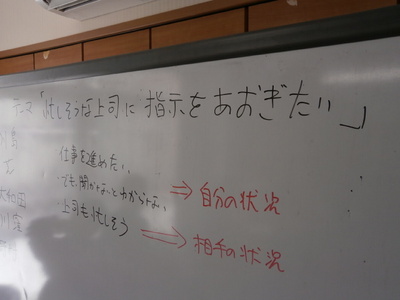 テーマ「忙しそうな上司に 指示をあおぎたい」
仕事を進めたい
・でも聞かないとわからない ⇒ 自分の状況
・上司も忙しそう ⇒ 相手の状況
大和田